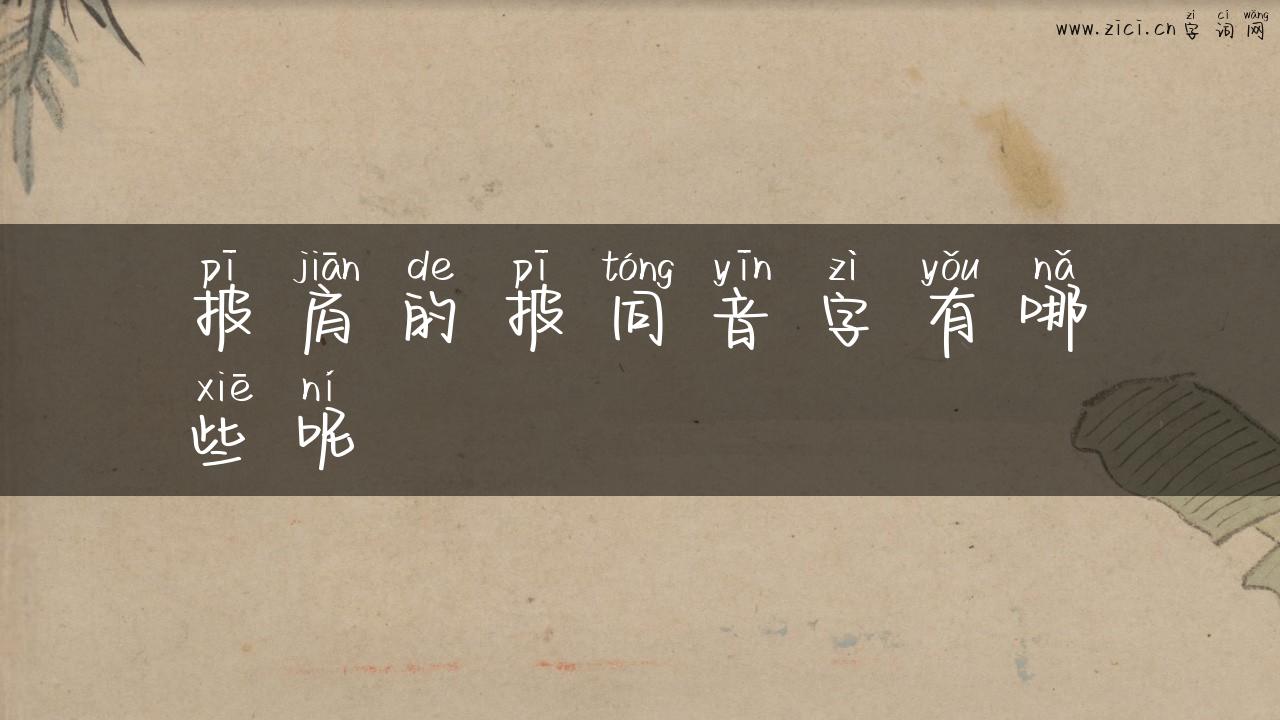 zì cí wǎng
www.zici.cn 字词网
pī jiān de pī tóng yīn zì yǒu nǎ
披肩的披同音字有哪
xiē ní
些呢